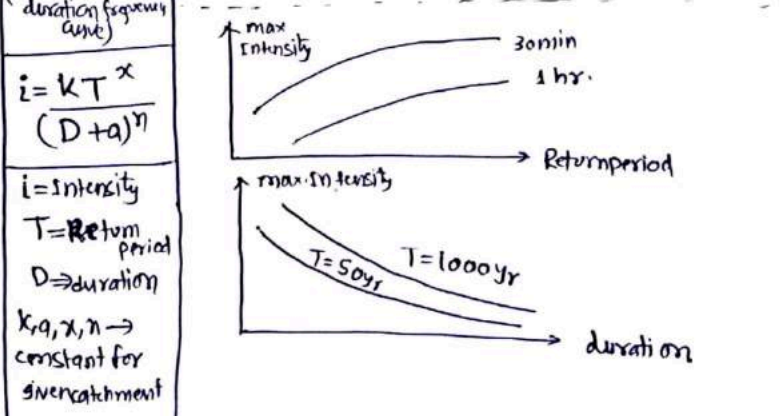 duration frequency
curve)
i = KT^x / (D+a)^n
i = Intensity
T = Return
period
D ⇒ duration
K, a, x, n →
constant for
given catchment
max
Intensity
30min
1 hr.
Return period
max. Intensity
T = 50yr
T = 1000yr
duration